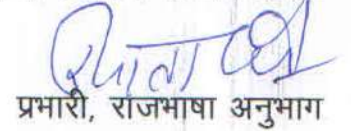 प्रभारी, राजभाषा अनुभाग